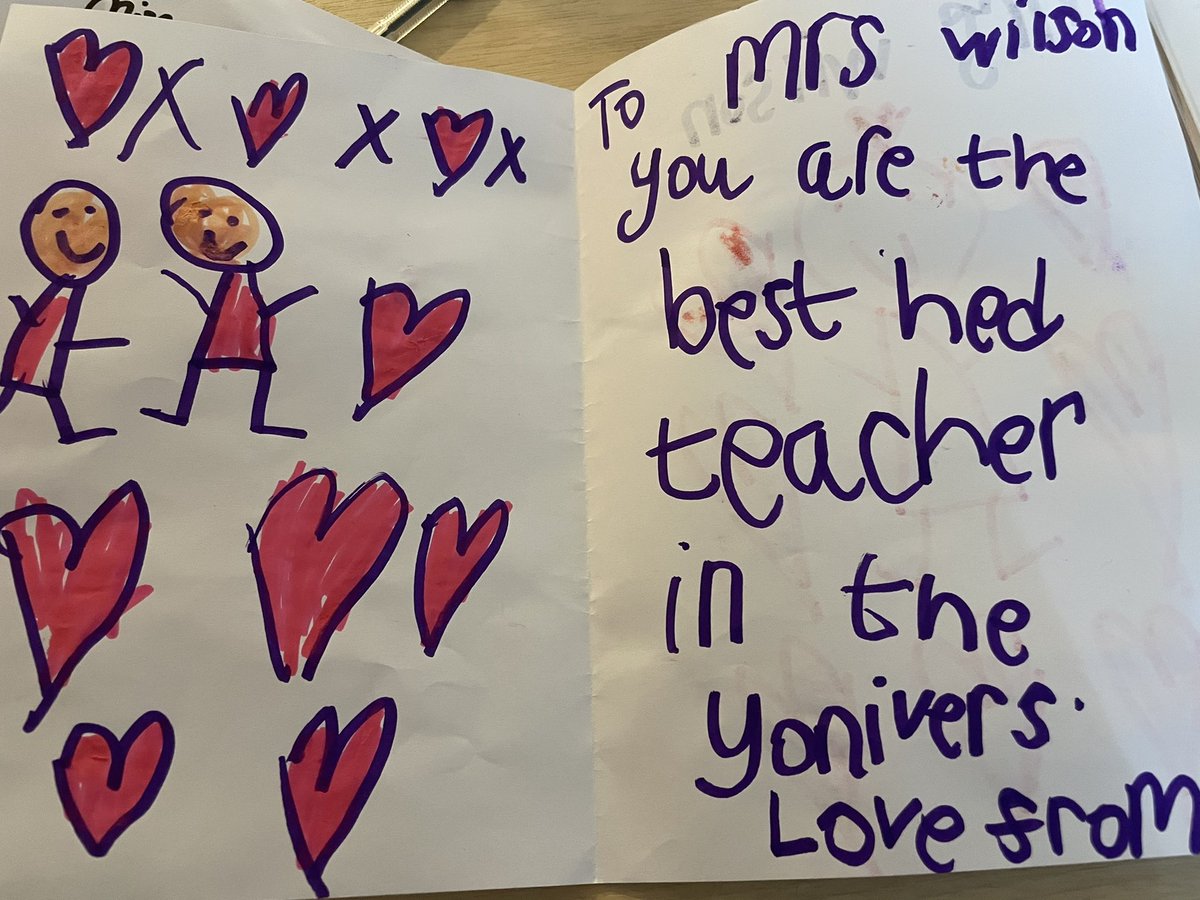 x x x
To mrs wilson
you are the
best hed
teacher
in the
yonivers.
Love from